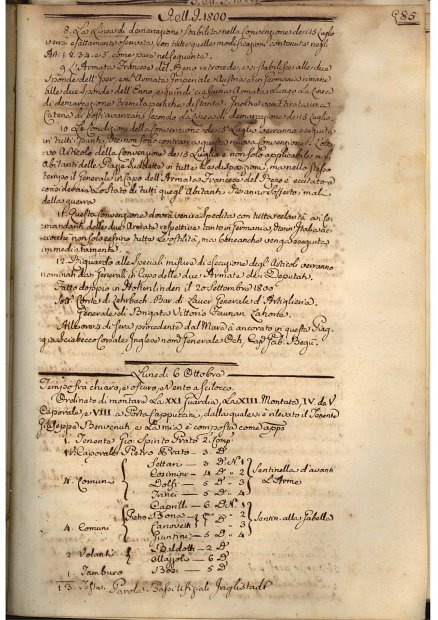 Dell'A. 1800
285
8. La Linea di demarcazione stabilita nella Convenzione de 15 Luglio
verrà esattamente osservata con tutte quelle modificazioni contenute negli
Art. 1. 2. 3. 4. e 5. come pure nel seguente.
9. L'Armata Francese del Reno retrocede, e si stabilisce alle due
Sponde dell'Iser, e l'Armata Imperiale Austriaca in Germania rimane
alle due Sponde dell'Enno, e quindi ciascuna Armata lungo la Linea
di demarcazione tremila pertiche distante. Inoltre verrà tirata una
Catena di posti avanzati secondo la Linea di demarcazione de 15 Luglio.
10. Le Condizioni della Convenzione de 15 Luglio verranno eseguite
in tutti i punti, che non sono contrarj a questa nuova Convenzione. L'otta-
vo Articolo della Convenzione de 15 Luglio è non solo applicabile agli
Abitanti delle Piazze suddette in tutte le sue disposizioni, ma nello stesso
tempo il Generale in Capo dell'Armata Francese del Reno è eccitato a
considerare lo Stato di tutti quegl'Abitanti, che anno sofferto i mali
della guerra
11. Questa Convenzione dovrà venire spedita con tutta celerità ai Co-
mandanti delle due Armate rispettive tanto in Germania, che in Italia, ac-
ciocchè non solo cessino tutte le ostilità, ma bensì anche venga eseguita
immediatamente.
12. Riguardo alle speciali misure di esecuzione degl'Articoli verranno
nominati dai Generali in Capo delle due Armate dei Deputati.
Fatto doppio in Hohenlinden il 20 Settembre 1800
Sott. Conte di Lehrbach. Bar. di Lauer Generale d'Artiglieria.
Generale di Brigata Vittorio Faunau Lahorie.
Alle ore 2 di sera procedente dal Mare à ancorato in questa Piag-
gia Sciabecco Corsale Inglese nom.
Lunedì 6 Ottobre
Tempo frà chiaro, e oscuro, e Vento a Scilocco.
Ordinato di montare La XXI. Guardia, La XIII. Montata, IV. da
Caporale, e VIII a Porta Cappuccini, dalla quale vi è rilevato il Tenente
Giuseppe Benvenuti, e La mia è composta come app.o
1. Tenente Gio. Spirito Prato 2. Comp.
1. Caporale Pietro Prato — 3. D.
4. Comuni
Settari — 3 D. N. 1
Cosimini — 4 D. " 2
Dolfi — 5 D. " 3
Trinci — 5 D. " 4
Sentinella d'avanti
l'Arme
4. Comuni
Caprilli — 6 D. N. 1
Pietro Bona — D. " 2
Canovelli — D. " 3
Giuntini — 5 D. " 4
Sentin. alla Gabella
2. Volanti
Baldotti — 2 D.
Mazzola — 6 D.
1. Tamburo
Bosi — 5 D.
13. Teste. Parola Bassi Ufiziali Inglistadt